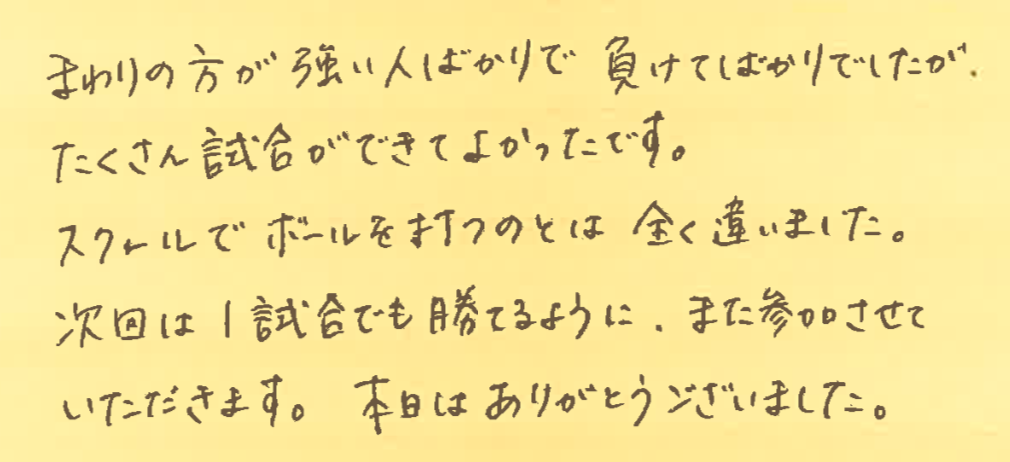 まわりの方が強い人ばかりで負けてばかりでしたが、
たくさん試合ができてよかったです。
スクールでボールを打つのとは全く違いました。
次回は1試合でも勝てるように、また参加させて
いただきます。本日はありがとうございました。